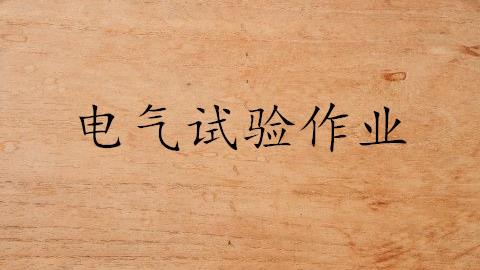 电气试验作业